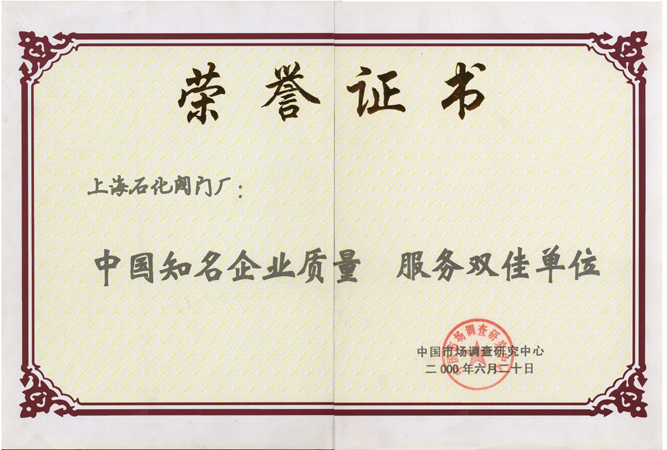 荣誉证书
上海石化阀门厂：
中国知名企业质量 服务双佳单位
中国市场调查研究中心
二000年六月二十日